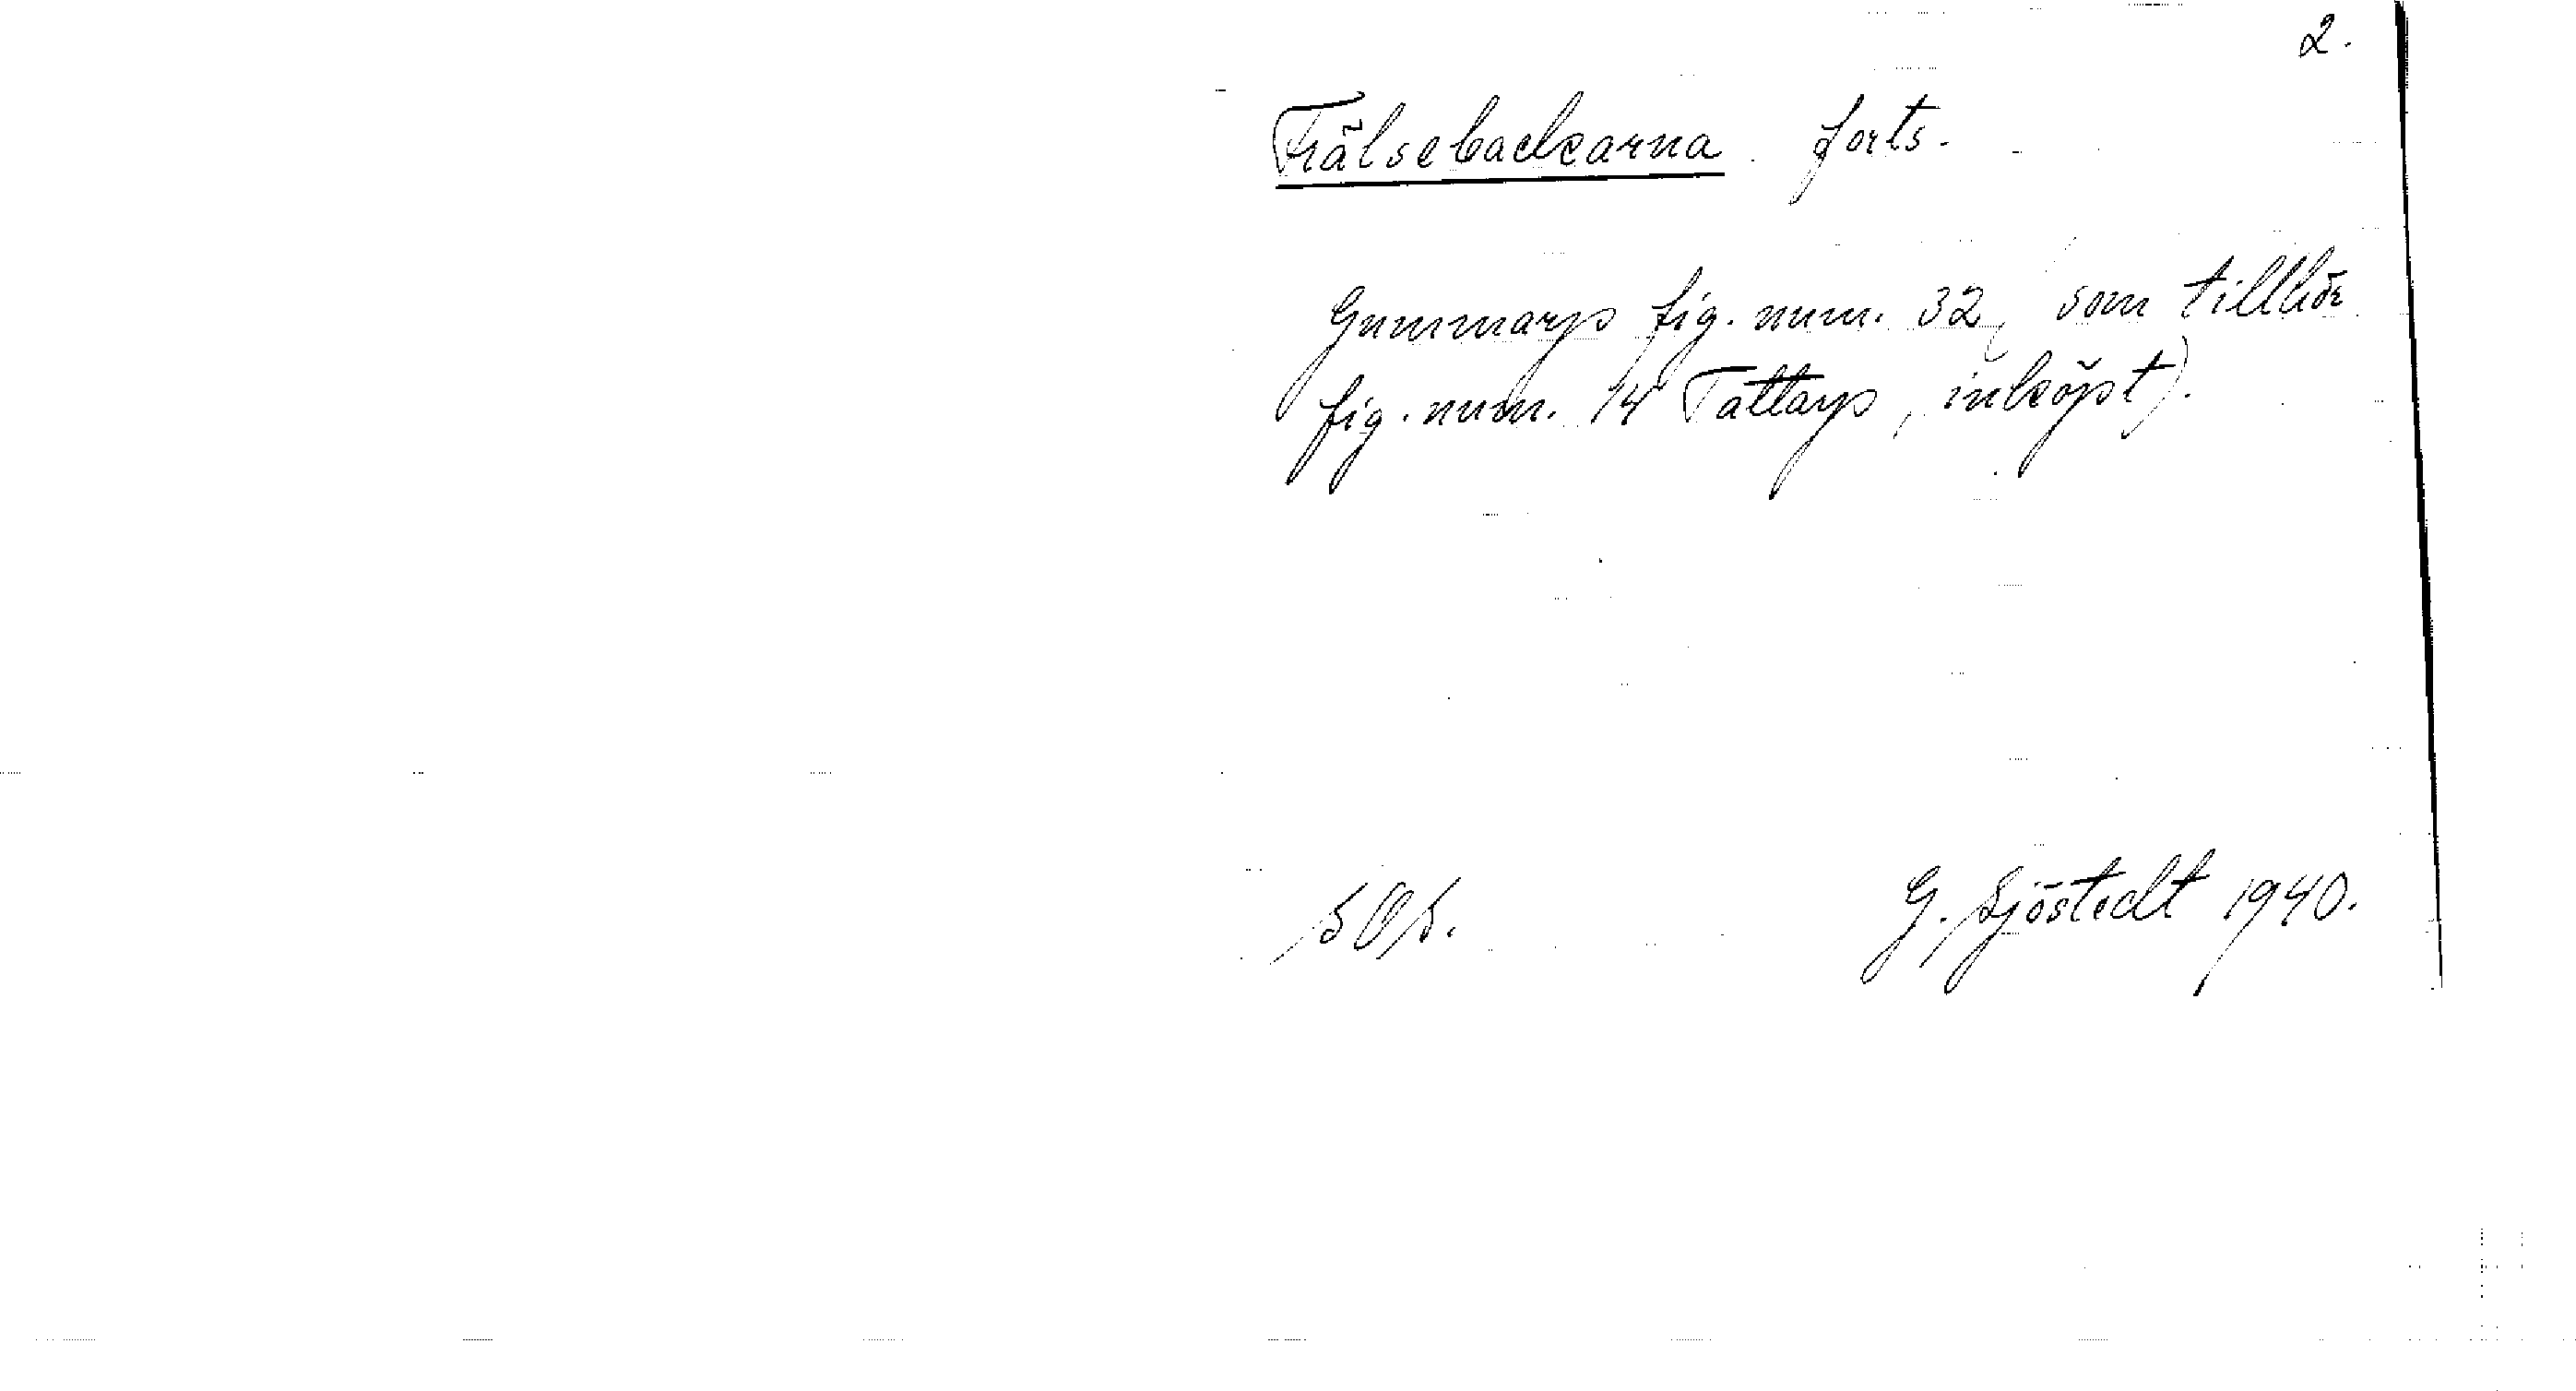 2.
Frälsebackarna forts.
Gummarps fig. num. 32, som tillhör
fig. num. 14 Tattarp, inköpt).
G. Sjöstedt 1940.